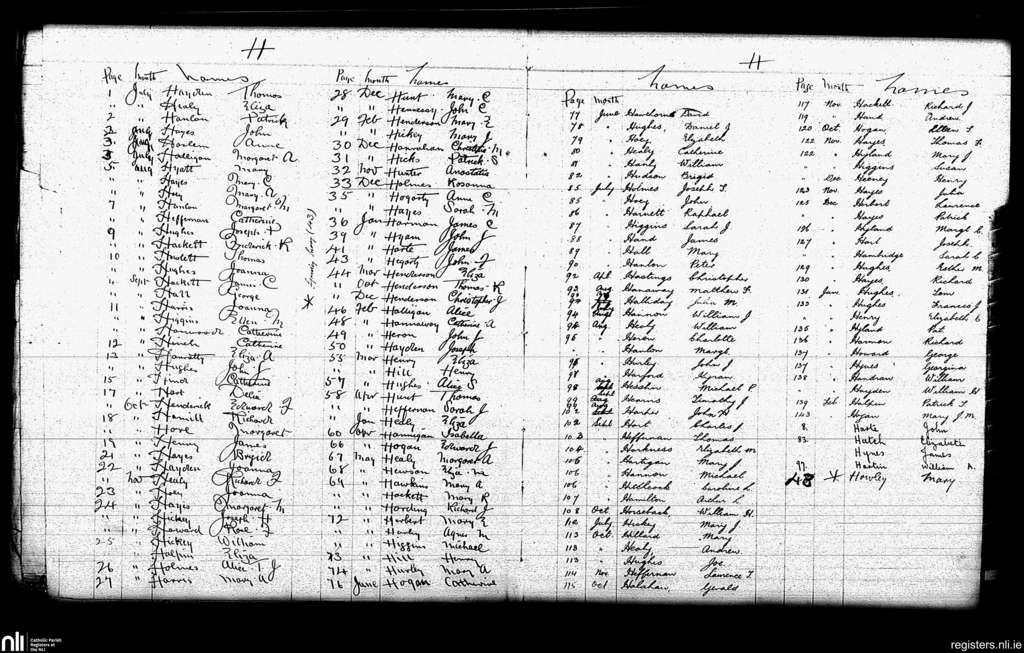 H
Page month names
1 July Hayden Thomas
" " Healy Eliza
2 " Hanlon Patrick
2 Aug Hayes John
3 July Harlem Anne
3 July Halligan Margaret A
5 Aug Hyatt Mary
" " Hayes Mary C
" " Mary A
7 " Hanlon Margaret M
" " Heffernan Catherine
9 " Hughes Joseph P
" " Hackett Frederick K
10 " Howlett Thomas
" " Hughes Joanna
" Sept Hackett James C
" " Hall George
11 " Harris Joanna
" " Higgins Ellen M
" " Catherine
12 " Catherine
13 " Eliza A
" " Hughes John J
15 " Catherine
17 " Hart Delia
" Oct Hendrick Edward F
18 " Hamill Richard
" " Hore Margaret
19 " Henry James
21 " Hayes Brigid
22 " Hayden Joanna
" Nov Healy Richard F
23 " Hoey Joanna
24 " Hayes Margaret M
" " Hickey Joseph H
" " Howard Rose
25 " Hickey William
" " Halpin Eliza
26 " Holmes Alice T J
27 " Harris Mary A
Page month names
28 Dec Hunt Mary C
" " Hennessy John C
29 Feb Henderson Mary E
" " Hickey Mary J
30 Dec Hanrahan Christina M
31 " Hicks Patrick S
32 Nov Hunter Anastatia
33 Dec Holmes Rosanna
35 " Hogarty Anne C
" " Hayes Sarah M
36 Jan Harman James C
39 " Hyam John J
41 " Harte James
43 " Hegarty John F
44 Mar Henderson Eliza
" Oct Henderson Thomas K
" Dec Henderson Christopher J
46 Feb Halligan Alice
48 " Hannaway Catherine A
49 " Heron John J
50 " Hayden Joseph
55 Mar Henry Eliza
" " Hill Henry
57 " Hughes Alice S
58 Apr Hunt Thomas
" " Heffernan Sarah J
" Jan Healy Eliza
60 Apr Hannigan Isabella
66 " Hogan Edward J
67 May Healy Margaret A
68 " Hewson Eliza M
69 " Hawkins Mary A
" " Hackett Mary K
" " Harding Richard J
72 " Herbert Mary E
" " Hurley Agnes M
" " Higgins Michael
73 " Hill Henry
74 " Hurley Mary A
76 June Hogan Catherine
H
Page month names
77 June Hawthorne David
78 " Hughes Daniel J
79 " Hoey Elizabeth
80 " Healy Catherine
81 " Hanly William
82 " Hudson Brigid
85 July Holmes Joseph T
" " Hoey John
86 " Harnett Raphael
87 " Higgins Sarah J
88 " Hand James
89 " Hall Mary
90 " Hanlon Peter
92 Apl Hastings Christopher
93 Aug Hanaway Matthew F
Halliday Julia M
94 Hannon William J
94 Aug Healy William
95 " Heron Charlotte
" " Hanlon Margt
96 " Hurley John J
98 " Harford Kyran
98 Sept Michael P
99 Aug Harris Timothy J
102 Sept John H
102 Sept Hart Charles J
103 " Heffernan Thomas
104 " Harkness Elizabeth M
106 " Hartigan Mary J
106 " Hannon Michael
106 " Hitchcock Caroline L
107 " Hamilton Arthur L
108 Oct Horseback William H
112 July Hickey Mary J
113 Oct Hillard Mary
113 " Healy Andrew
113 " Hughes Joe
114 Nov Heffernan Laurence T
115 Oct Gerald
Page Month names
117 Nov Hackett Richard J
119 " Hand Andrew
120 Oct Hogan
122 Nov Hayes Thomas F
122 " Hyland Mary J
" Higgins Susan
" Dec Heeney Henry
123 Nov Hayes Julia
125 Dec Herbert Laurence
" Hayes Patrick
126 " Hyland Margt C
127 " Hart Joseph
" Hambridge Sarah C
129 " Hughes M
130 " Hayes Richard
131 Jan Hughes
133 " Hughes Frances J
" Henry Elizabeth C
135 " Hyland Pat
136 " Harmon Richard
137 " Howard George
137 " Hynes Georgina
138 " William
" Hayden William H
139 Feb Halpin Patrick T
143 " Hogan Mary J M
8. Harte John
83. Hatch Elizabeth
Hynes James
97. William A.
48 * Howley Mary
nli Catholic Parish
Registers at
the NLI
registers.nli.ie